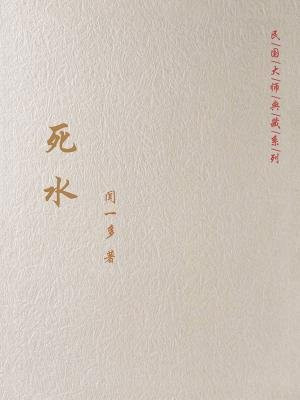 民/国/大/师/典/藏/系/列
死水
闻一多 著